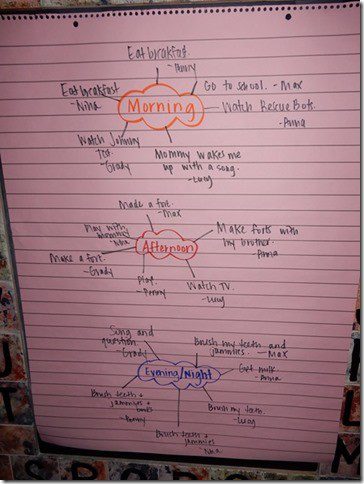 Eat breakfast.
- Penny
Eat breakfast
- Nina
Go to school. - Max
Morning
Watch Rescue Bots.
- Anna
Watch Johnny
Test.
- Grady
Mommy wakes me
up with a song.
- Lucy
Made a fort.
- Max
Play with
mommy
- Nina
Make forts with
my brother.
- Anna
Afternoon
Make a fort.
- Grady
Play.
- Penny
Watch TV.
- Lucy
Song and
question
- Grady
Brush my teeth and
jammies. - Max
Evening/Night
Get milk.
- Anna
Brush teeth +
jammies +
books
- Penny
Brush my teeth.
- Lucy
Brush teeth +
jammies
- Nina